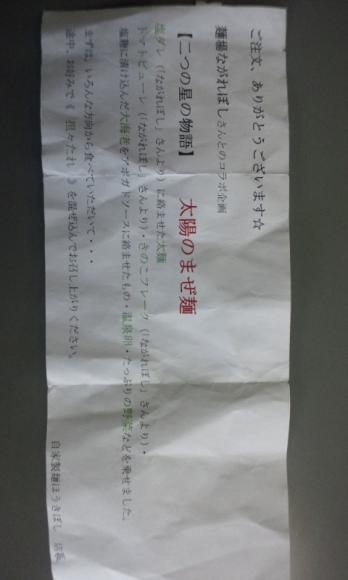 ご注文、ありがとうございます☆
麺場ながれぼしさんとのコラボ企画
【二つの星の物語】 太陽のまぜ麺
塩ダレ(「ながれぼし」さんより)に絡ませた太麺
トマトピューレ(「ながれぼし」さんより)・きのこフレーク(「ながれぼし」さんより)・
塩麹に漬け込んだ大海老をアボガドソースに絡ませたもの・温泉卵・たっぷりの野菜などを乗せました。
まずは、いろんな方向から食べていただいて・・・
途中、お好みで《担々だれ》を混ぜ込んでお召し上がりください。
自家製麺ほうきぼし 店長